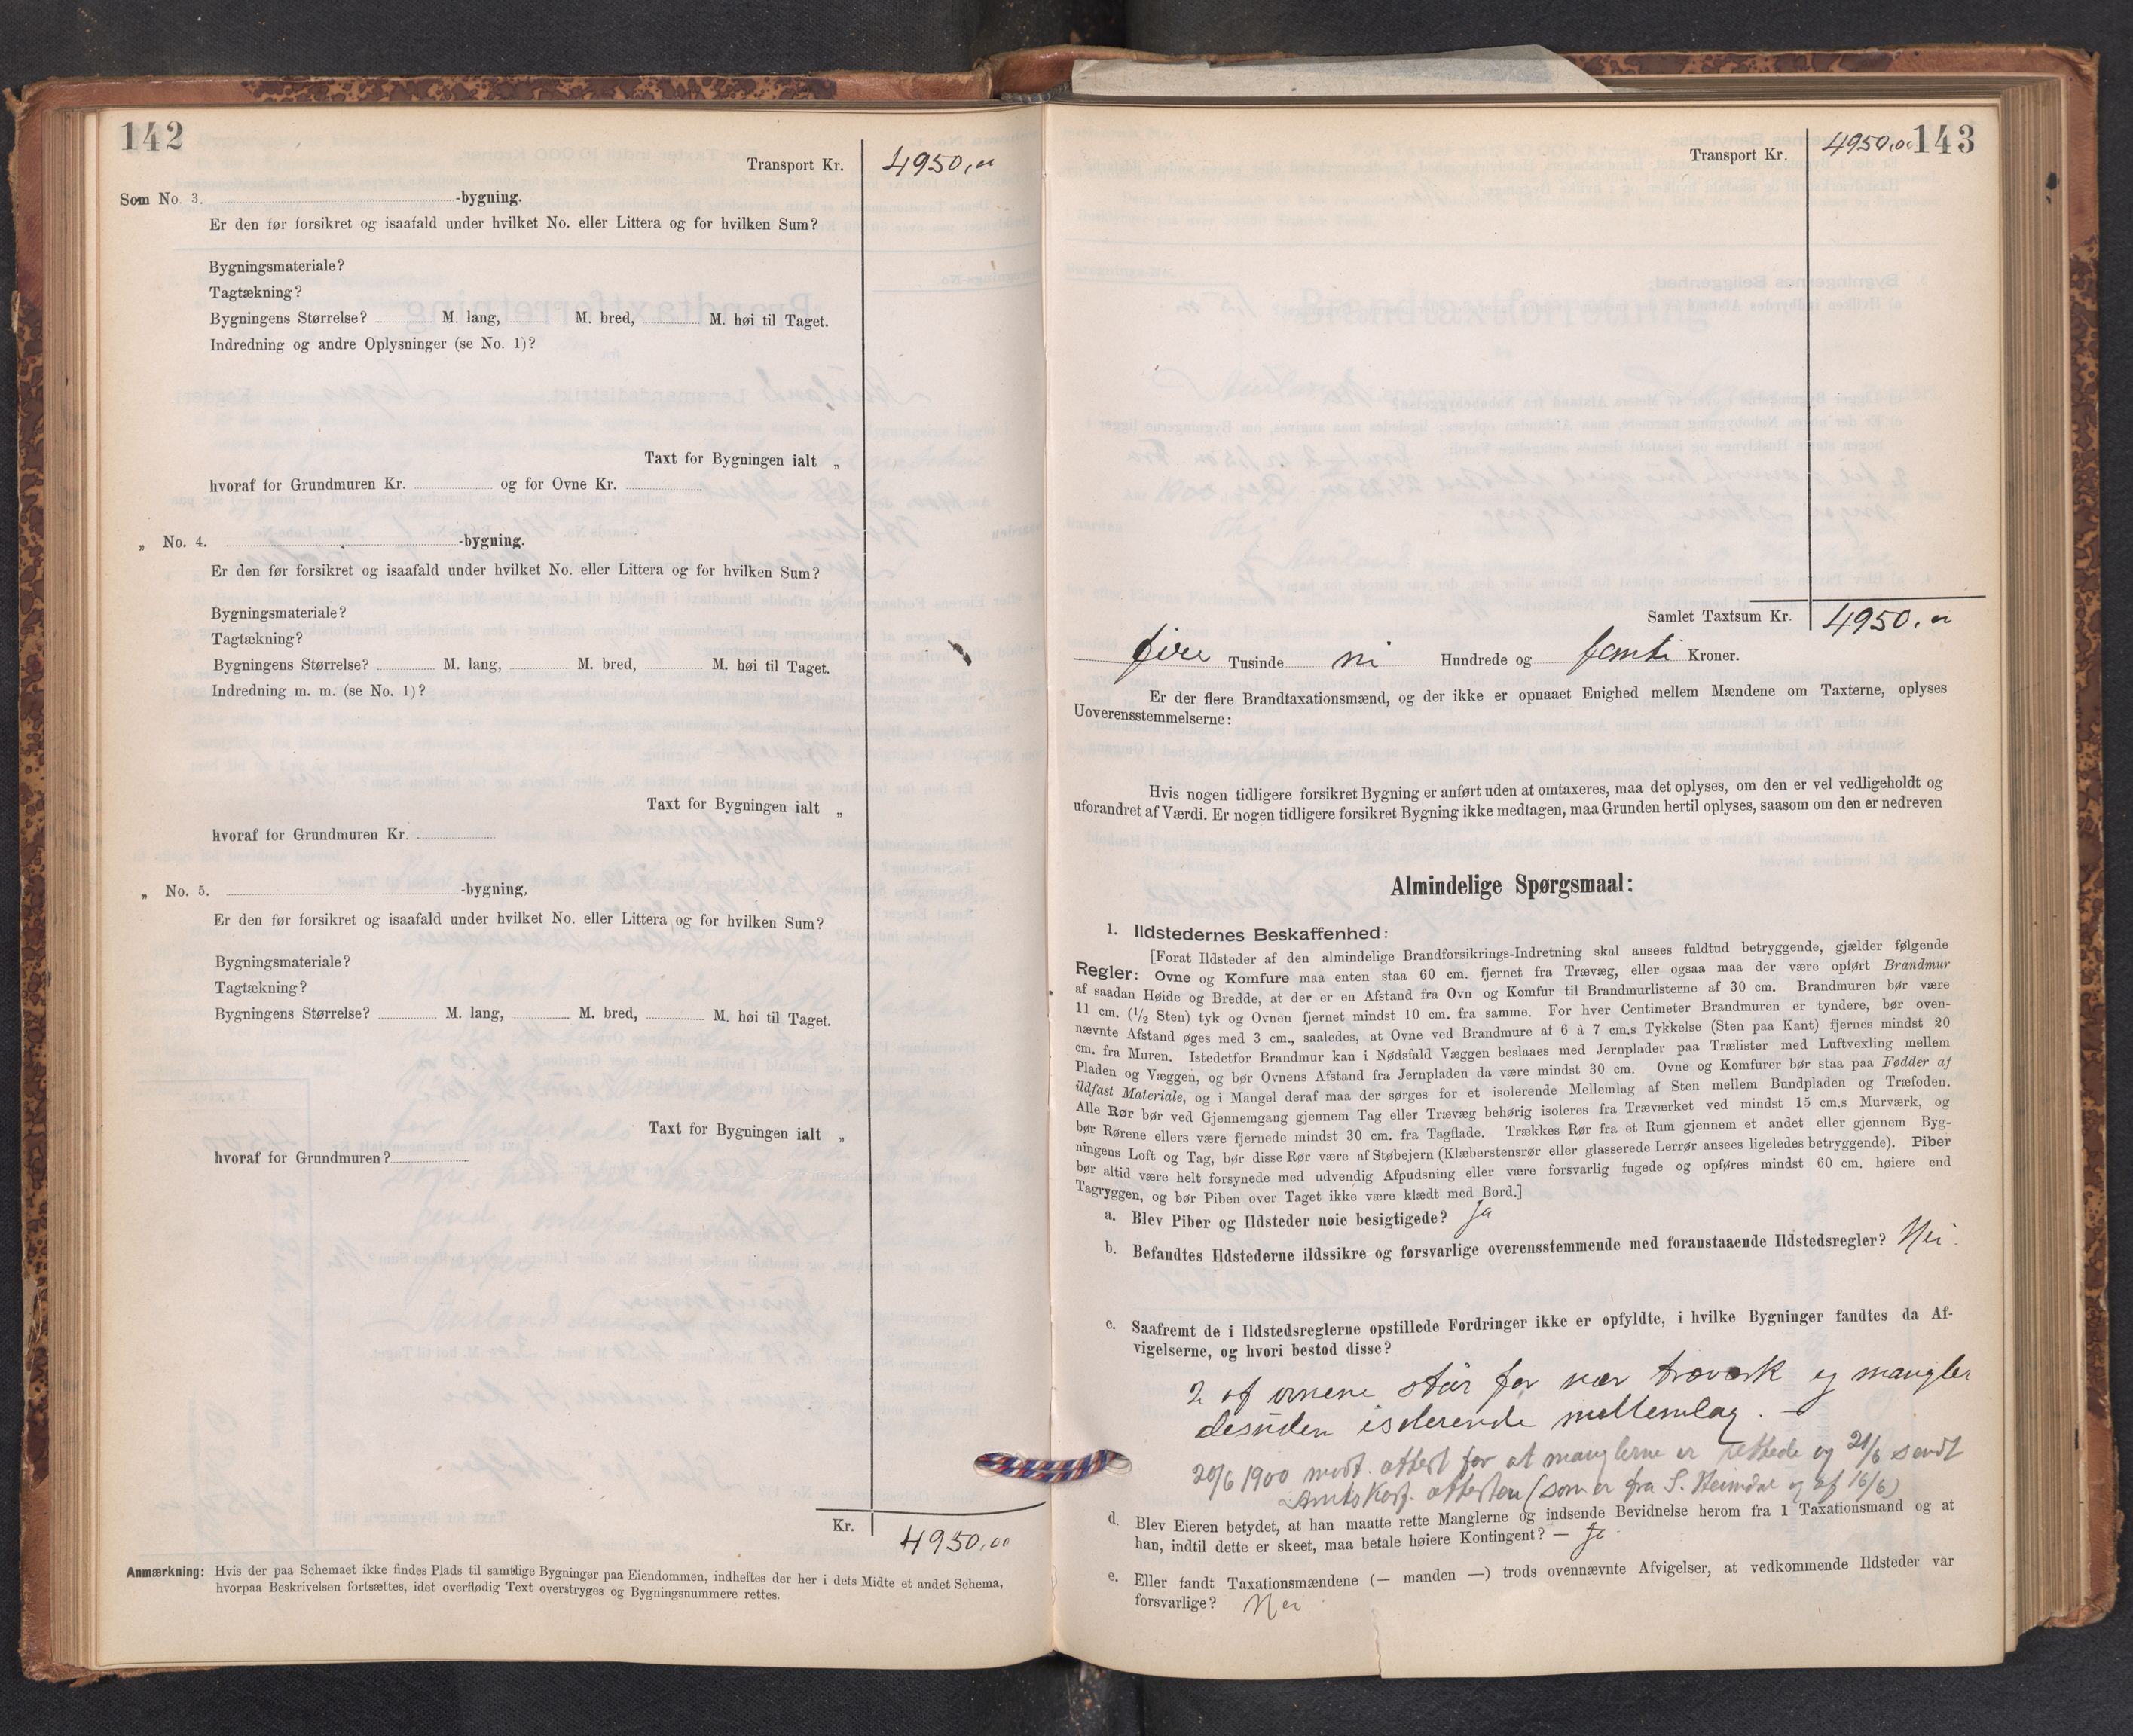 142
Transport Kr. 4950,00
Som No. 3. -bygning.
Er den før forsikret og isaafald under hvilket No. eller Littera og for hvilken Sum?
Bygningsmateriale?
Tagtækning?
Bygningens Størrelse? M. lang, M. bred, M. høi til Taget.
Indredning og andre Oplysninger (se No. 1)?
Taxt for Bygningen ialt „
hvoraf for Grundmuren Kr. og for Ovne Kr.
„ No. 4. -bygning.
Er den før forsikret og isaafald under hvilket No. eller Littera og for hvilken Sum?
Bygningsmateriale?
Tagtækning?
Bygningens Størrelse? M. lang, M. bred, M. høi til Taget.
Indredning m. m. (se No. 1)?
Taxt for Bygningen ialt „
hvoraf for Grundmuren Kr.
„ No. 5. -bygning.
Er den før forsikret og isaafald under hvilket No. eller Littera og for hvilken Sum?
Bygningsmateriale?
Tagtækning?
Bygningens Størrelse? M. lang, M. bred, M. høi til Taget.
Taxt for Bygningen ialt „
hvoraf for Grundmuren?
Kr. 4950,00
Anmærkning: Hvis der paa Schemaet ikke findes Plads til samtlige Bygninger paa Eiendommen, indheftes der her i dets Midte et andet Schema,
hvorpaa Beskrivelsen fortsættes, idet overflødig Text overstryges og Bygningsnummere rettes.
143
Transport Kr. 4950,00
Samlet Taxtsum Kr. 4950,00
fire Tusinde ni Hundrede og femti Kroner.
Er der flere Brandtaxationsmænd, og der ikke er opnaaet Enighed mellem Mændene om Taxterne, oplyses
Uoverensstemmelserne:
Hvis nogen tidligere forsikret Bygning er anført uden at omtaxeres, maa det oplyses, om den er vel vedligeholdt og
uforandret af Værdi. Er nogen tidligere forsikret Bygning ikke medtagen, maa Grunden hertil oplyses, saasom om den er nedreven
Almindelige Spørgsmaal:
1. Ildstedernes Beskaffenhed:
[Forat Ildsteder af den almindelige Brandforsikrings-Indretning skal ansees fuldtud betryggende, gjælder følgende
Regler: Ovne og Komfure maa enten staa 60 cm. fjernet fra Trævæg, eller ogsaa maa der være opført Brandmur
af saadan Høide og Bredde, at der er en Afstand fra Ovn og Komfur til Brandmurlisterne af 30 cm. Brandmuren bør være
11 cm. (1/2 Sten) tyk og Ovnen fjernet mindst 10 cm. fra samme. For hver Centimeter Brandmuren er tyndere, bør oven-
nævnte Afstand øges med 3 cm., saaledes, at Ovne ved Brandmure af 6 à 7 cm.s Tykkelse (Sten paa Kant) fjernes mindst 20
cm. fra Muren. Istedetfor Brandmur kan i Nødsfald Væggen beslaaes med Jernplader paa Trælister med Luftvexling mellem
Pladen og Væggen, og bør Ovnens Afstand fra Jernpladen da være mindst 30 cm. Ovne og Komfurer bør staa paa Fødder af
ildfast Materiale, og i Mangel deraf maa der sørges for et isolerende Mellemlag af Sten mellem Bundpladen og Træfoden.
Alle Rør bør ved Gjennemgang gjennem Tag eller Trævæg behørig isoleres fra Træværket ved mindst 15 cm.s Murværk, og
bør Rørene ellers være fjernede mindst 30 cm. fra Tagflade. Trækkes Rør fra et Rum gjennem et andet eller gjennem Byg-
ningens Loft og Tag, bør disse Rør være af Støbejern (Klæberstensrør eller glasserede Lerrør ansees ligeledes betryggende). Piber
bør altid være helt forsynede med udvendig Afpudsning eller være forsvarlig fugede og opføres mindst 60 cm. høiere end
Tagryggen, og bør Piben over Taget ikke være klædt med Bord.]
a. Blev Piber og Ildsteder nøie besigtigede? Ja
b. Befandtes Ildstederne ildssikre og forsvarlige overensstemmende med foranstaaende Ildstedsregler? Nei.
c. Saafremt de i Ildstedsreglerne opstillede Fordringer ikke er opfyldte, i hvilke Bygninger fandtes da Af-
vigelserne, og hvori bestod disse?
2 af ovnene står for nær træverk og mangler
desuden isolerende mellemlag. –
20/6 1900 modt. attest for at manglerne er rettede og 21/6 sendt
Amtskorf. attesten (som er fra S. Heimdal og af 16/6)
d. Blev Eieren betydet, at han maatte rette Manglerne og indsende Bevidnelse herom fra 1 Taxationsmand og at
han, indtil dette er skeet, maa betale høiere Kontingent? — Ja.
e. Eller fandt Taxationsmændene (— manden —) trods ovennævnte Afvigelser, at vedkommende Ildsteder var
forsvarlige? Nei